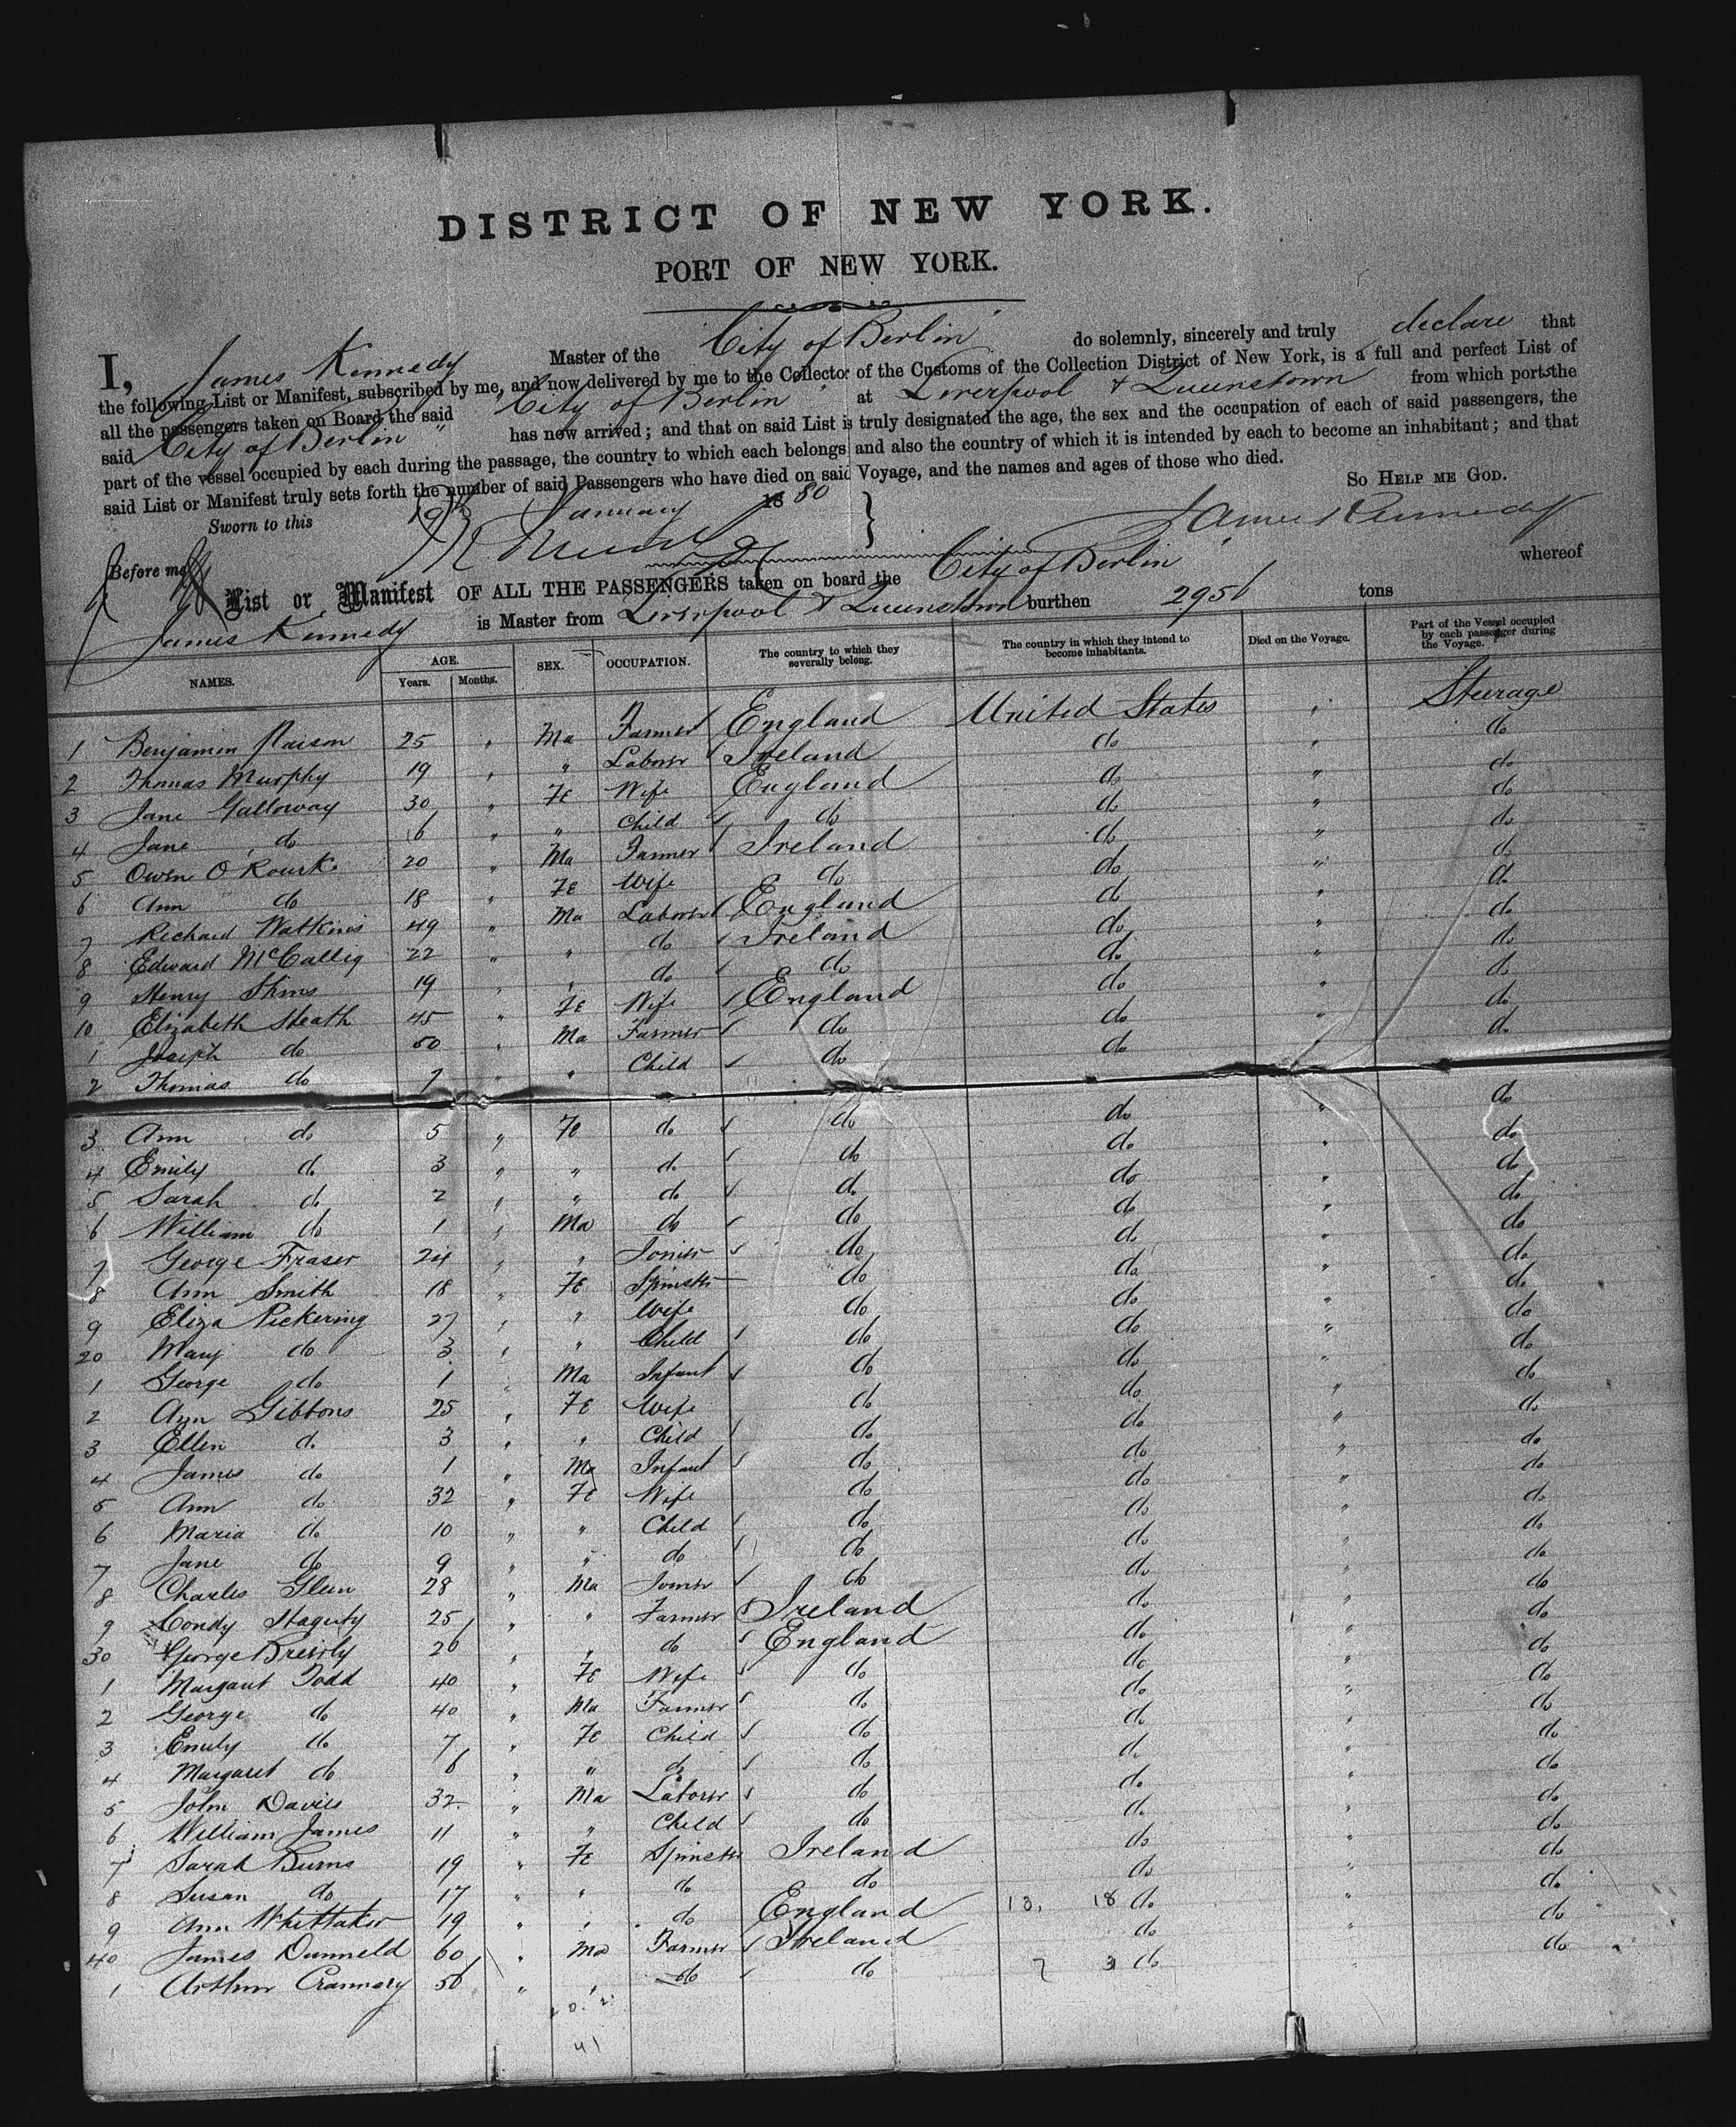 DISTRICT OF NEW YORK.
PORT OF NEW YORK.
I, James Kennedy Master of the "City of Berlin" do solemnly, sincerely and truly declare that
the following List or Manifest, subscribed by me, and now delivered by me to the Collector of the Customs of the Collection District of New York, is a full and perfect List of
all the passengers taken on Board the said "City of Berlin" at Liverpool & Queenstown from which ports the
said "City of Berlin" has now arrived; and that on said List is truly designated the age, the sex and the occupation of each of said passengers, the
part of the vessel occupied by each during the passage, the country to which each belongs and also the country of which it is intended by each to become an inhabitant; and that
said List or Manifest truly sets forth the number of said Passengers who have died on said Voyage, and the names and ages of those who died.
So Help me God.
Sworn to this 19th January 1880 } James Kennedy
Before me
List or Manifest OF ALL THE PASSENGERS taken on board the "City of Berlin" whereof
James Kennedy is Master from Liverpool & Queenstown burthen 2956 tons
NAMES. AGE. Years. Months. SEX. OCCUPATION. The country to which they severally belong. The country in which they intend to become inhabitants. Died on the Voyage. Part of the Vessel occupied by each passenger during the Voyage.
1 Benjamin 25 " Ma Farmer England United States " Steerage
2 Thomas Murphy 19 " " Laborer Ireland do " do
3 Jane Galloway 30 " Fe Wife England do " do
4 Jane do 6 " " Child do do " do
5 Owen O'Rourke 20 " Ma Farmer Ireland do " do
6 Ann do 18 " Fe Wife do do " do
7 Richard Watkins 49 " Ma Laborer England do " do
8 Edward 22 " " do Ireland do " do
9 Henry 19 " " do do do " do
10 Elizabeth Heath 45 " Fe Wife England do " do
1 Joseph do 50 " Ma Farmer do do " do
2 Thomas do 7 " " Child do do do
3 Ann do 5 " Fe do do do " do
4 Emily do 3 " " do do do " do
5 Sarah do 2 " " do do do " do
6 William do 1 " Ma do do do " do
7 George Fraser 24 " " Joiner do do " do
8 Ann Smith 18 " Fe Spinster do do " do
9 Eliza Pickering 27 " " Wife do do " do
20 Mary do 3 " " Child do do " do
1 George do 1 " Ma Infant do do " do
2 Ann Gibbons 25 " Fe Wife do do " do
3 Ellen do 3 " " Child do do " do
4 James do 1 " Ma Infant do do " do
5 Ann do 32 " Fe Wife do do " do
6 Maria do 10 " " Child do do " do
7 Jane do 9 " " do do do " do
8 Charles 28 " Ma Joiner do do " do
9 Condy 25 " " Farmer Ireland do " do
30 George 26 " " do England do " do
1 Margaret Todd 40 " Fe Wife do do " do
2 George do 40 " Ma Farmer do do " do
3 Emily do 7 " Fe Child do do " do
4 Margaret do 6 " " do do do " do
5 John Davies 32 " Ma Laborer do do " do
6 William James 11 " " Child do do " do
7 Sarah Burns 19 " Fe Spinster Ireland do " do
8 Susan do 17 " " do do do " do
9 Ann Whittaker 19 " " do England 18 do " do
40 James 60 " Ma Farmer Ireland do " do
1 Arthur 56 " " do do 3 do do
41